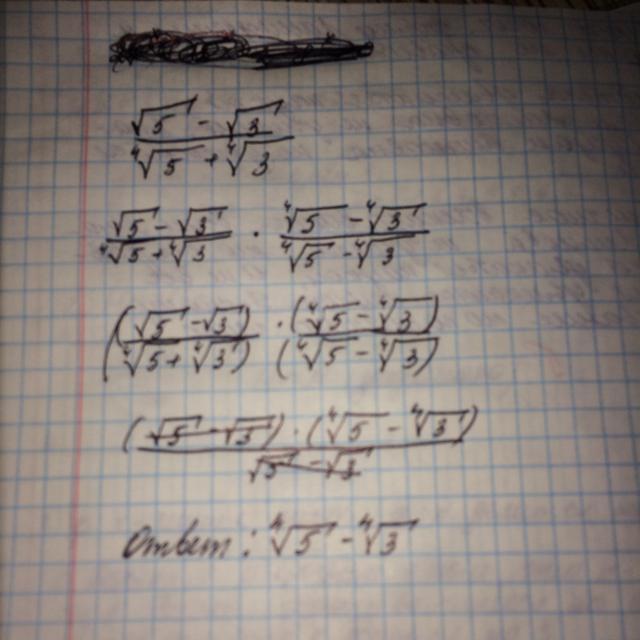 (√5 - √3) / (⁴√5 + ⁴√3)
(√5 - √3) / (⁴√5 + ⁴√3) · (⁴√5 - ⁴√3) / (⁴√5 - ⁴√3)
(√5 - √3) · (⁴√5 - ⁴√3) / (⁴√5 + ⁴√3) (⁴√5 - ⁴√3)
(√5 - √3) · (⁴√5 - ⁴√3) / √5 - √3
Ответ: ⁴√5 - ⁴√3